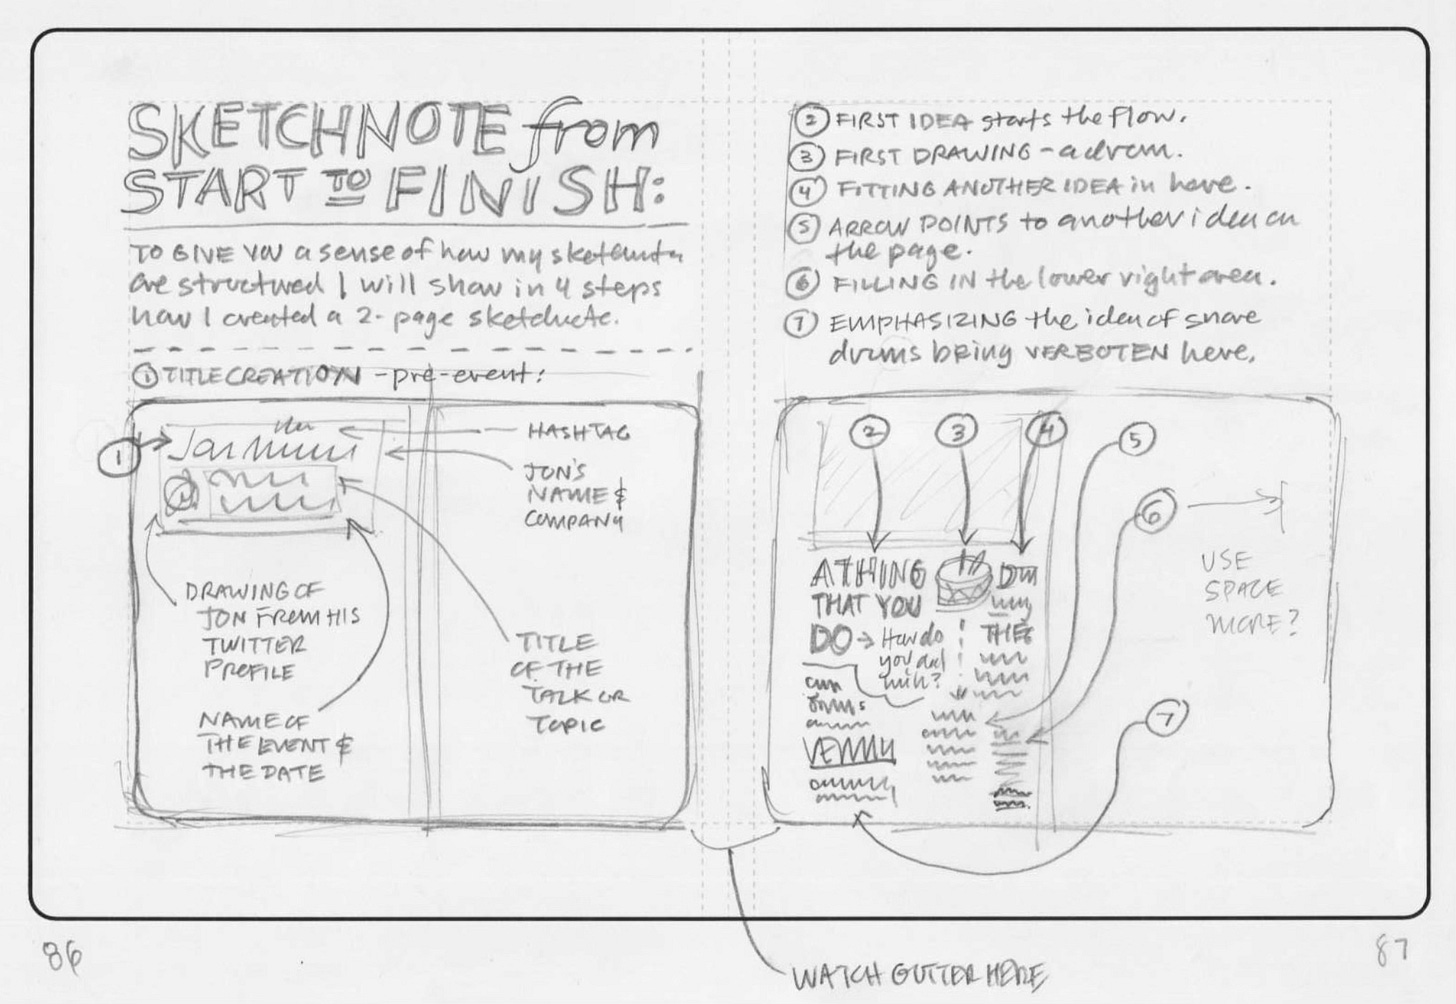 SKETCHNOTE from
START TO FINISH:
TO GIVE YOU a sense of how my sketchnotes
are structured I will show in 4 steps
how I created a 2-page sketchnote.
① TITLE CREATION - pre-event:
1
HASHTAG
JON'S
NAME &
COMPANY
DRAWING OF
JON FROM HIS
TWITTER
PROFILE
NAME OF
THE EVENT &
THE DATE
TITLE
OF THE
TALK OR
TOPIC
② FIRST IDEA starts the flow.
③ FIRST DRAWING - a drum.
④ FITTING ANOTHER IDEA in here.
⑤ ARROW POINTS to another idea on
the page.
⑥ FILLING IN the lower right area.
⑦ EMPHASIZING the idea of snare
drums being VERBOTEN here.
2 3 4
5
6
7
A THING
THAT YOU
DO → How do
you
USE
SPACE
MORE?
86
87
WATCH GUTTER HERE